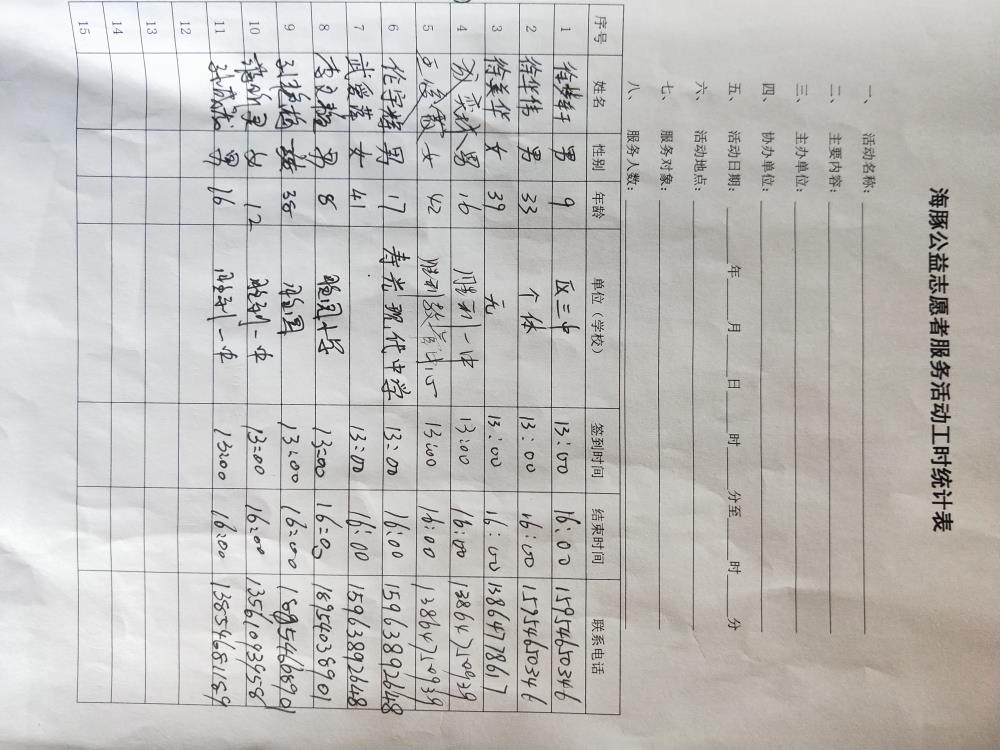 海豚公益志愿者服务活动工时统计表
一、 活动名称:
二、 主要内容:
三、 主办单位:
四、 协办单位:
五、 活动日期: 年 月 日 时 分至 时 分
六、 活动地点:
七、 服务对象:
八、 服务人数:
序号 姓名 性别 年龄 单位（学校） 签到时间 结束时间 联系电话
1 男 9 区三中 13:00 16:00 15954650346
2 徐华伟 男 33 个体 13:00 16:00 15954650346
3 徐美华 女 39 无 13:00 16:00 13864778617
4 男 16 胜利一中 13:00 16:00 13864750939
5 女 42 胜利教育中心 13:00 16:00 13864750939
6 任宇辉 男 17 寿光现代中学 13:00 16:00 15963892648
7 武爱萍 女 41 13:00 16:00 15963892648
8 男 8 13:00 16:00 18954038901
9 38 13:00 16:00
10 女 12 胜利一中 13:00 16:00 13561093958
11 男 16 胜利一中 13:00 16:00 13854681189
12
13
14
15